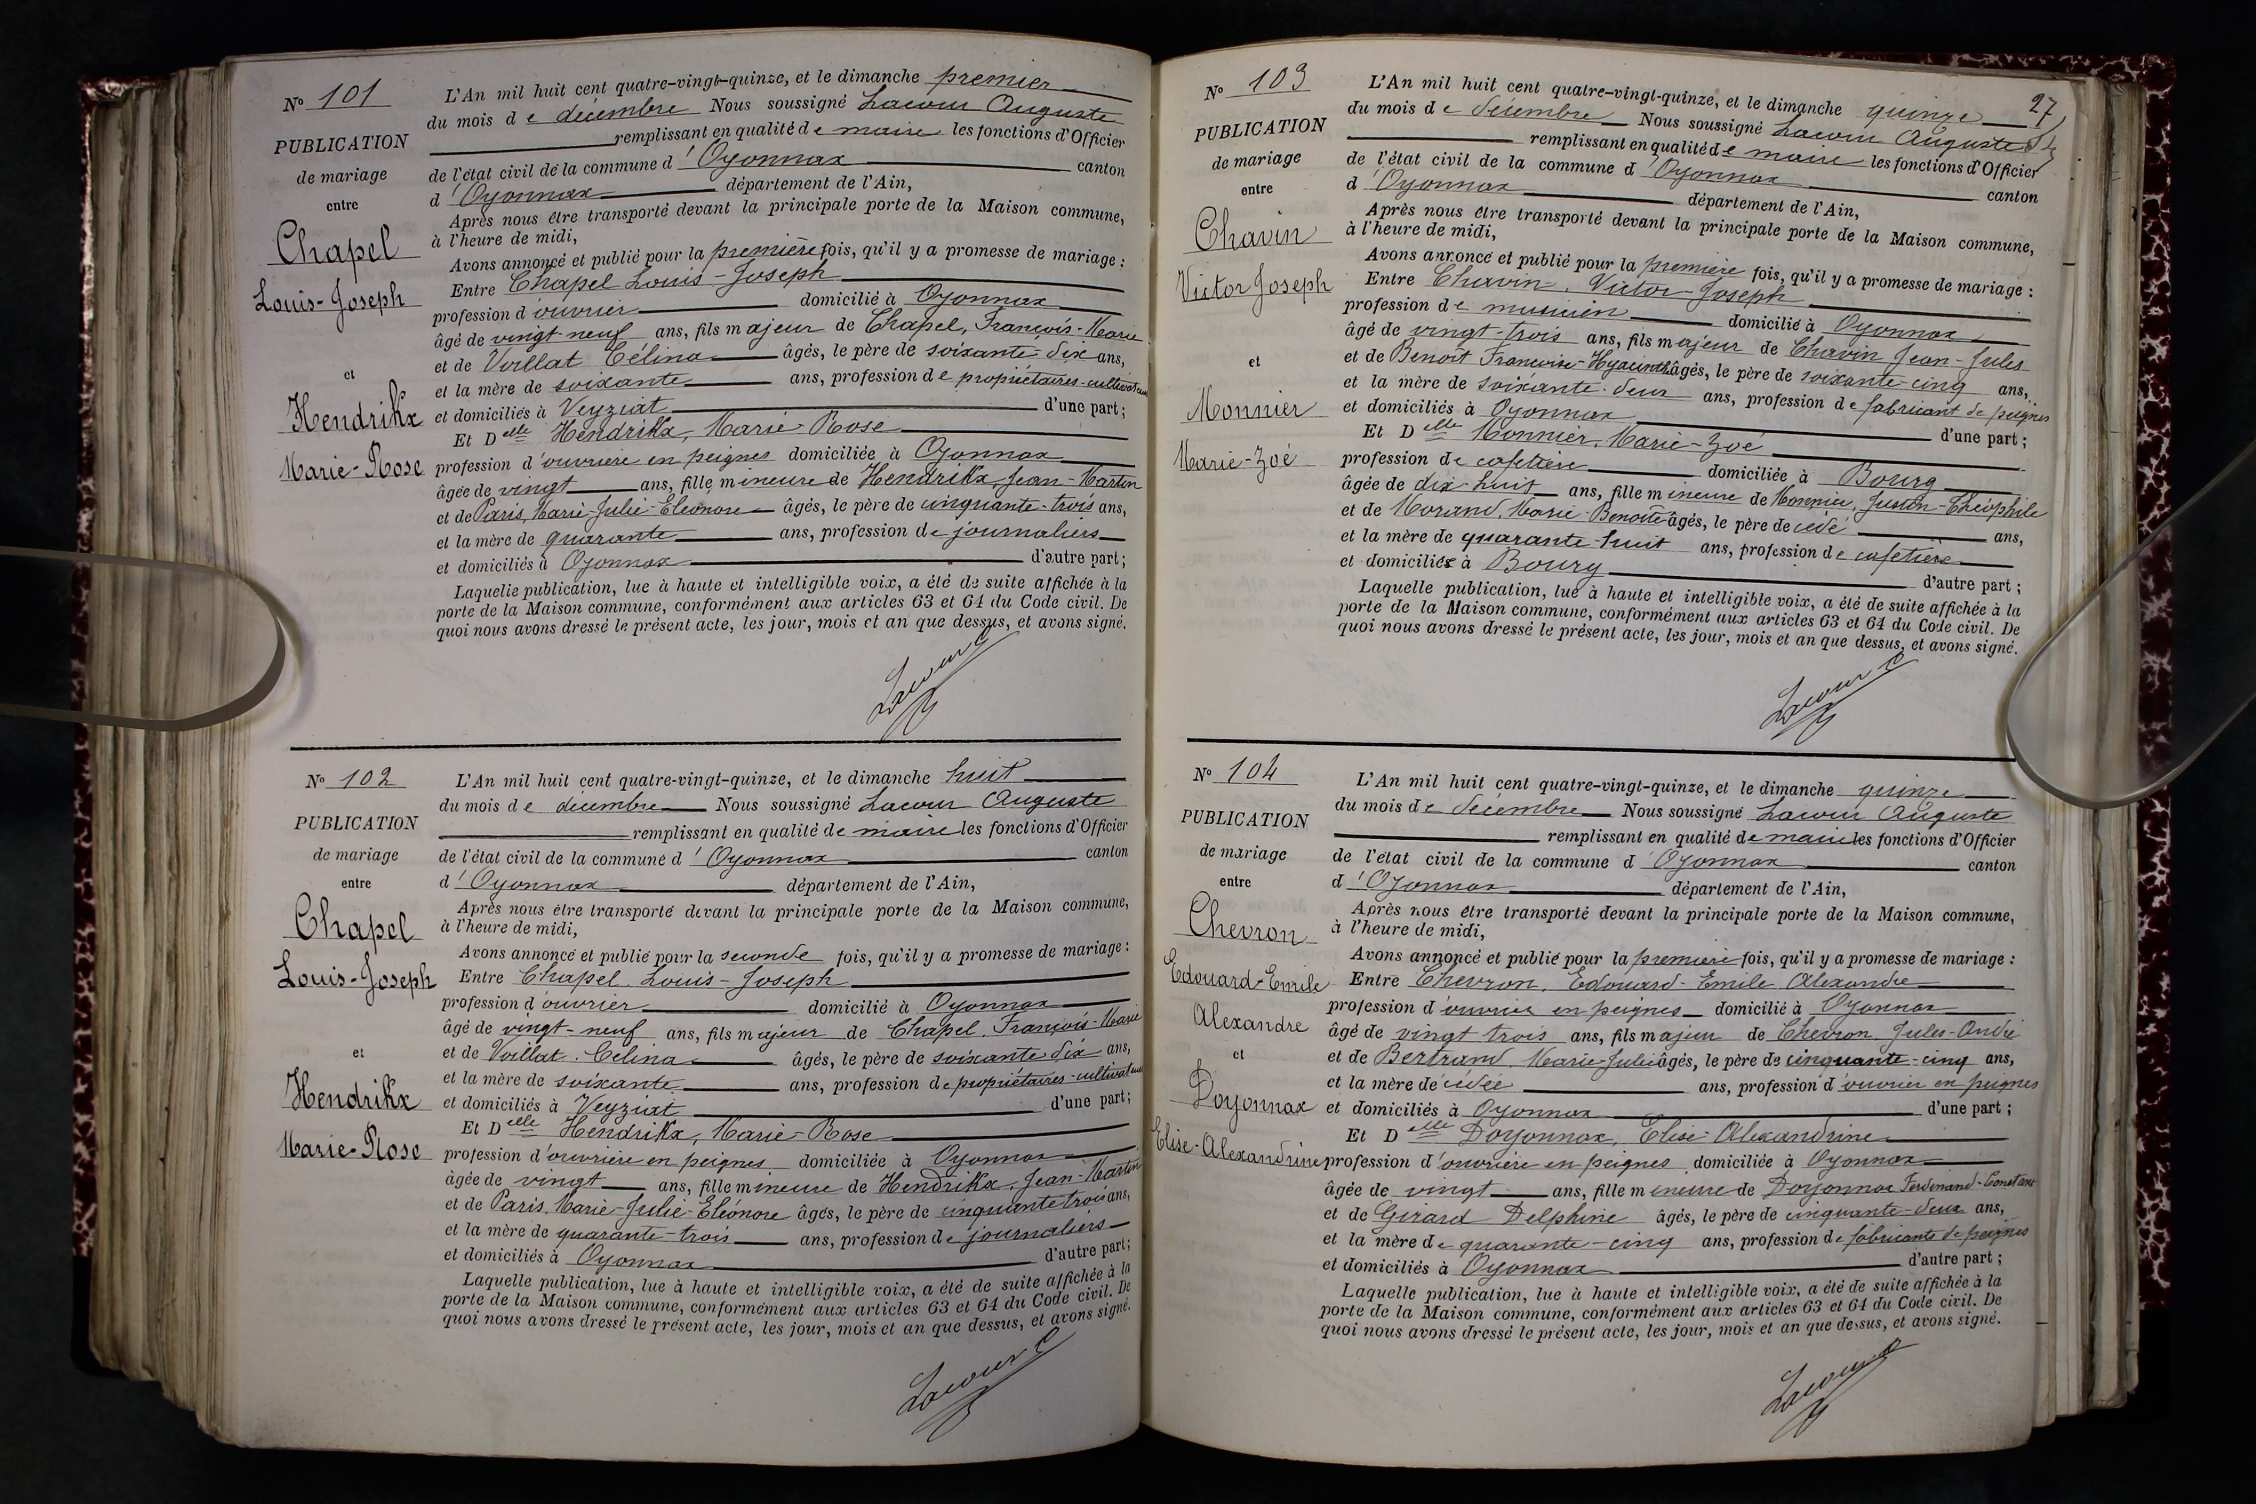 N° 101
PUBLICATION
de mariage
entre
Chapel
Louis-Joseph
et
Hendrikx
Marie-Rose
L'An mil huit cent quatre-vingt-quinze, et le dimanche premier
du mois de décembre Nous soussigné Lacour Auguste
remplissant en qualité de maire les fonctions d'Officier
de l'état civil de la commune d'Oyonnax canton
d'Oyonnax département de l'Ain,
Après nous être transporté devant la principale porte de la Maison commune,
à l'heure de midi,
Avons annoncé et publié pour la première fois, qu'il y a promesse de mariage :
Entre Chapel Louis-Joseph
profession d'ouvrier domicilié à Oyonnax
âgé de vingt-neuf ans, fils majeur de Chapel, François-Marie
et de Vuillat Célina âgés, le père de soixante-dix ans,
et la mère de soixante ans, profession de propriétaires-cultivateurs
et domiciliés à Veyziat d'une part ;
Et Delle Hendrikx, Marie-Rose
profession d'ouvrière en peignes domiciliée à Oyonnax
âgée de vingt ans, fille mineure de Hendrikx, Jean-Martin
et de Paris, Marie-Julie-Eléonore âgés, le père de cinquante-trois ans,
et la mère de quarante ans, profession de journaliers
et domiciliés à Oyonnax d'autre part ;
Laquelle publication, lue à haute et intelligible voix, a été de suite affichée à la
porte de la Maison commune, conformément aux articles 63 et 64 du Code civil. De
quoi nous avons dressé le présent acte, les jour, mois et an que dessus, et avons signé.
Lacour
N° 102
PUBLICATION
de mariage
entre
Chapel
Louis-Joseph
et
Hendrikx
Marie-Rose
L'An mil huit cent quatre-vingt-quinze, et le dimanche huit
du mois de décembre Nous soussigné Lacour Auguste
remplissant en qualité de maire les fonctions d'Officier
de l'état civil de la commune d'Oyonnax canton
d'Oyonnax département de l'Ain,
Après nous être transporté devant la principale porte de la Maison commune,
à l'heure de midi,
Avons annoncé et publié pour la seconde fois, qu'il y a promesse de mariage :
Entre Chapel Louis-Joseph
profession d'ouvrier domicilié à Oyonnax
âgé de vingt-neuf ans, fils majeur de Chapel, François-Marie
et de Vuillat, Celina âgés, le père de soixante dix ans,
et la mère de soixante ans, profession de propriétaires-cultivateurs
et domiciliés à Veyziat d'une part ;
Et Delle Hendrikx, Marie-Rose
profession d'ouvrière en peignes domiciliée à Oyonnax
âgée de vingt ans, fille mineure de Hendrikx, Jean-Martin
et de Paris, Marie-Julie-Eléonore âgés, le père de cinquante trois ans,
et la mère de quarante-trois ans, profession de journaliers
et domiciliés à Oyonnax d'autre part ;
Laquelle publication, lue à haute et intelligible voix, a été de suite affichée à la
porte de la Maison commune, conformément aux articles 63 et 64 du Code civil. De
quoi nous avons dressé le présent acte, les jour, mois et an que dessus, et avons signé.
Lacour
27
N° 103
PUBLICATION
de mariage
entre
Chavin
Victor Joseph
et
Monnier
Marie-Zoé
L'An mil huit cent quatre-vingt-quinze, et le dimanche quinze
du mois de décembre Nous soussigné Lacour Auguste
remplissant en qualité de maire les fonctions d'Officier
de l'état civil de la commune d'Oyonnax canton
d'Oyonnax département de l'Ain,
Après nous être transporté devant la principale porte de la Maison commune,
à l'heure de midi,
Avons annoncé et publié pour la première fois, qu'il y a promesse de mariage :
Entre Chavin, Victor-Joseph
profession de musicien domicilié à Oyonnax
âgé de vingt-trois ans, fils majeur de Chavin Jean-Jules
et de Benoît Françoise-Hyacinthe âgés, le père de soixante-cinq ans,
et la mère de soixante-deux ans, profession de fabricant de peignes
et domiciliés à Oyonnax d'une part ;
Et Delle Monnier, Marie-Zoé
profession de cafetière domiciliée à Bourg
âgée de dix-huit ans, fille mineure de Monnier, Justin-Théophile
et de Morand, Marie-Benoîte âgés, le père décédé ans,
et la mère de quarante-huit ans, profession de cafetière
et domiciliés à Bourg d'autre part ;
Laquelle publication, lue à haute et intelligible voix, a été de suite affichée à la
porte de la Maison commune, conformément aux articles 63 et 64 du Code civil. De
quoi nous avons dressé le présent acte, les jour, mois et an que dessus, et avons signé.
Lacour
N° 104
PUBLICATION
de mariage
entre
Chevron
Edouard-Emile
Alexandre
et
Doyonnax
Elise-Alexandrine
L'An mil huit cent quatre-vingt-quinze, et le dimanche quinze
du mois de décembre Nous soussigné Lacour Auguste
remplissant en qualité de maire les fonctions d'Officier
de l'état civil de la commune d'Oyonnax canton
d'Oyonnax département de l'Ain,
Après nous être transporté devant la principale porte de la Maison commune,
à l'heure de midi,
Avons annoncé et publié pour la première fois, qu'il y a promesse de mariage :
Entre Chevron, Edouard-Emile Alexandre
profession d'ouvrier en peignes domicilié à Oyonnax
âgé de vingt trois ans, fils majeur de Chevron Jules-André
et de Bertrand, Marie-Julie âgés, le père de cinquante-cinq ans,
et la mère décédée ans, profession d'ouvrier en peignes
et domiciliés à Oyonnax d'une part ;
Et Delle Doyonnax, Elise-Alexandrine
profession d'ouvrière en peignes domiciliée à Oyonnax
âgée de vingt ans, fille mineure de Doyonnax Ferdinand-Constant
et de Girard Delphine âgés, le père de cinquante-deux ans,
et la mère de quarante-cinq ans, profession de fabricants de peignes
et domiciliés à Oyonnax d'autre part ;
Laquelle publication, lue à haute et intelligible voix, a été de suite affichée à la
porte de la Maison commune, conformément aux articles 63 et 64 du Code civil. De
quoi nous avons dressé le présent acte, les jour, mois et an que dessus, et avons signé.
Lacour